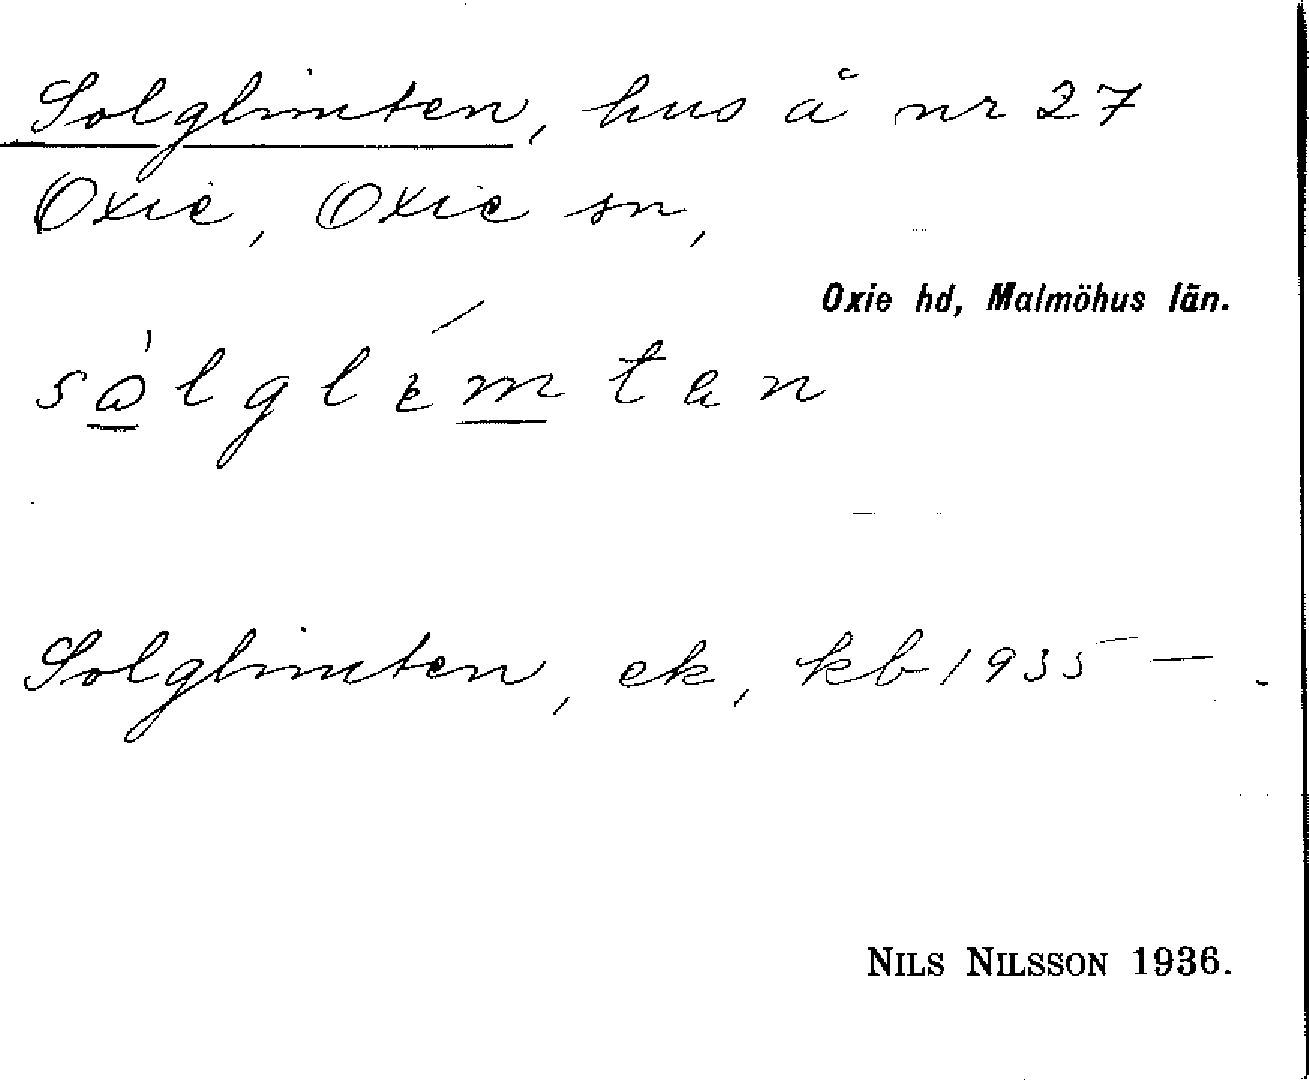 Solglimten, hus å nr 27
Oxie, Oxie sn,
Oxie hd, Malmöhus län.
Solglimten, ek, kb 1935 — .
NILS NILSSON 1936.